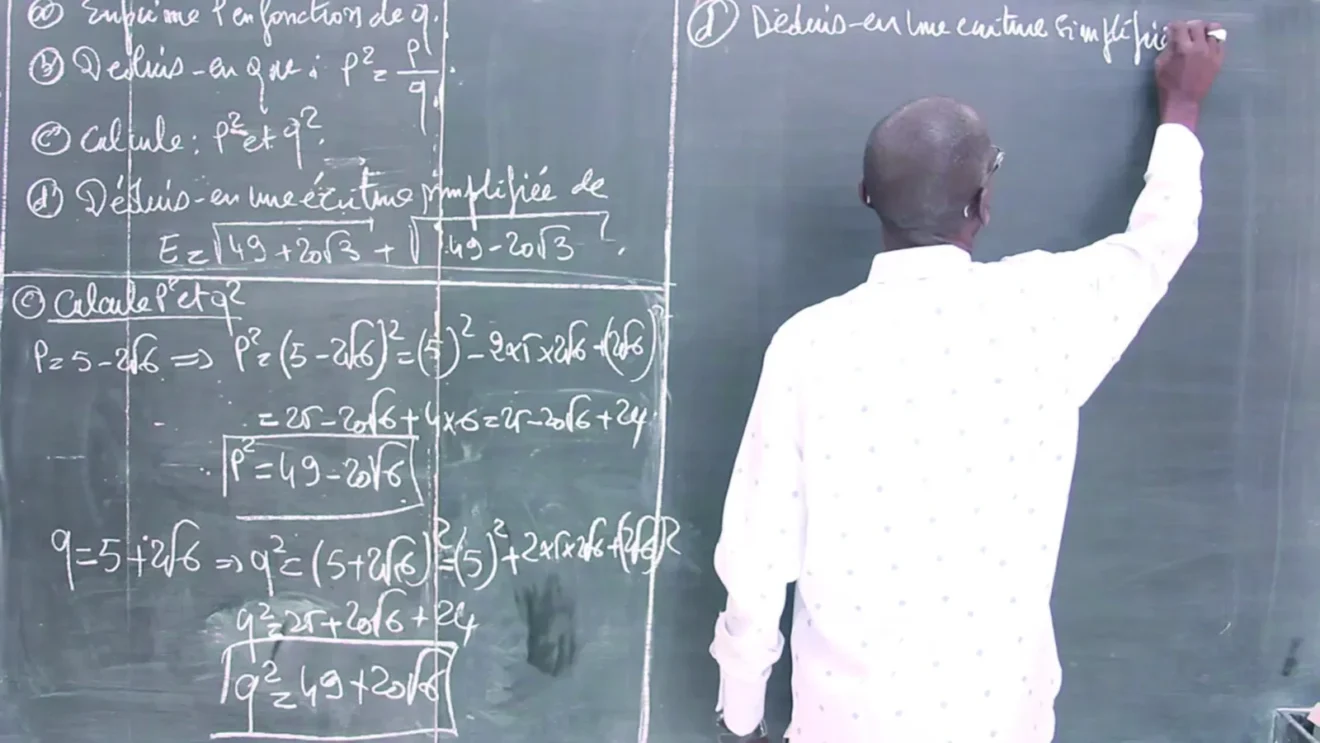 ⓐ Exprime P en fonction de q.
ⓑ Déduis-en que : P² = P/q.
ⓒ Calcule : P² et q².
ⓓ Déduis-en une écriture simplifiée de
E = √(49 + 20√3) + √(49 - 20√3).
ⓒ Calcule P² et q²
P = 5 - 2√6 ⇒ P² = (5 - 2√6)² = (5)² - 2×5×2√6 + (2√6)²
= 25 - 20√6 + 4×6 = 25 - 20√6 + 24
P² = 49 - 20√6
q = 5 + 2√6 ⇒ q² = (5 + 2√6)² = (5)² + 2×5×2√6 + (2√6)²
q² = 25 + 20√6 + 24
q² = 49 + 20√6
ⓓ Déduis-en une écriture simplifié